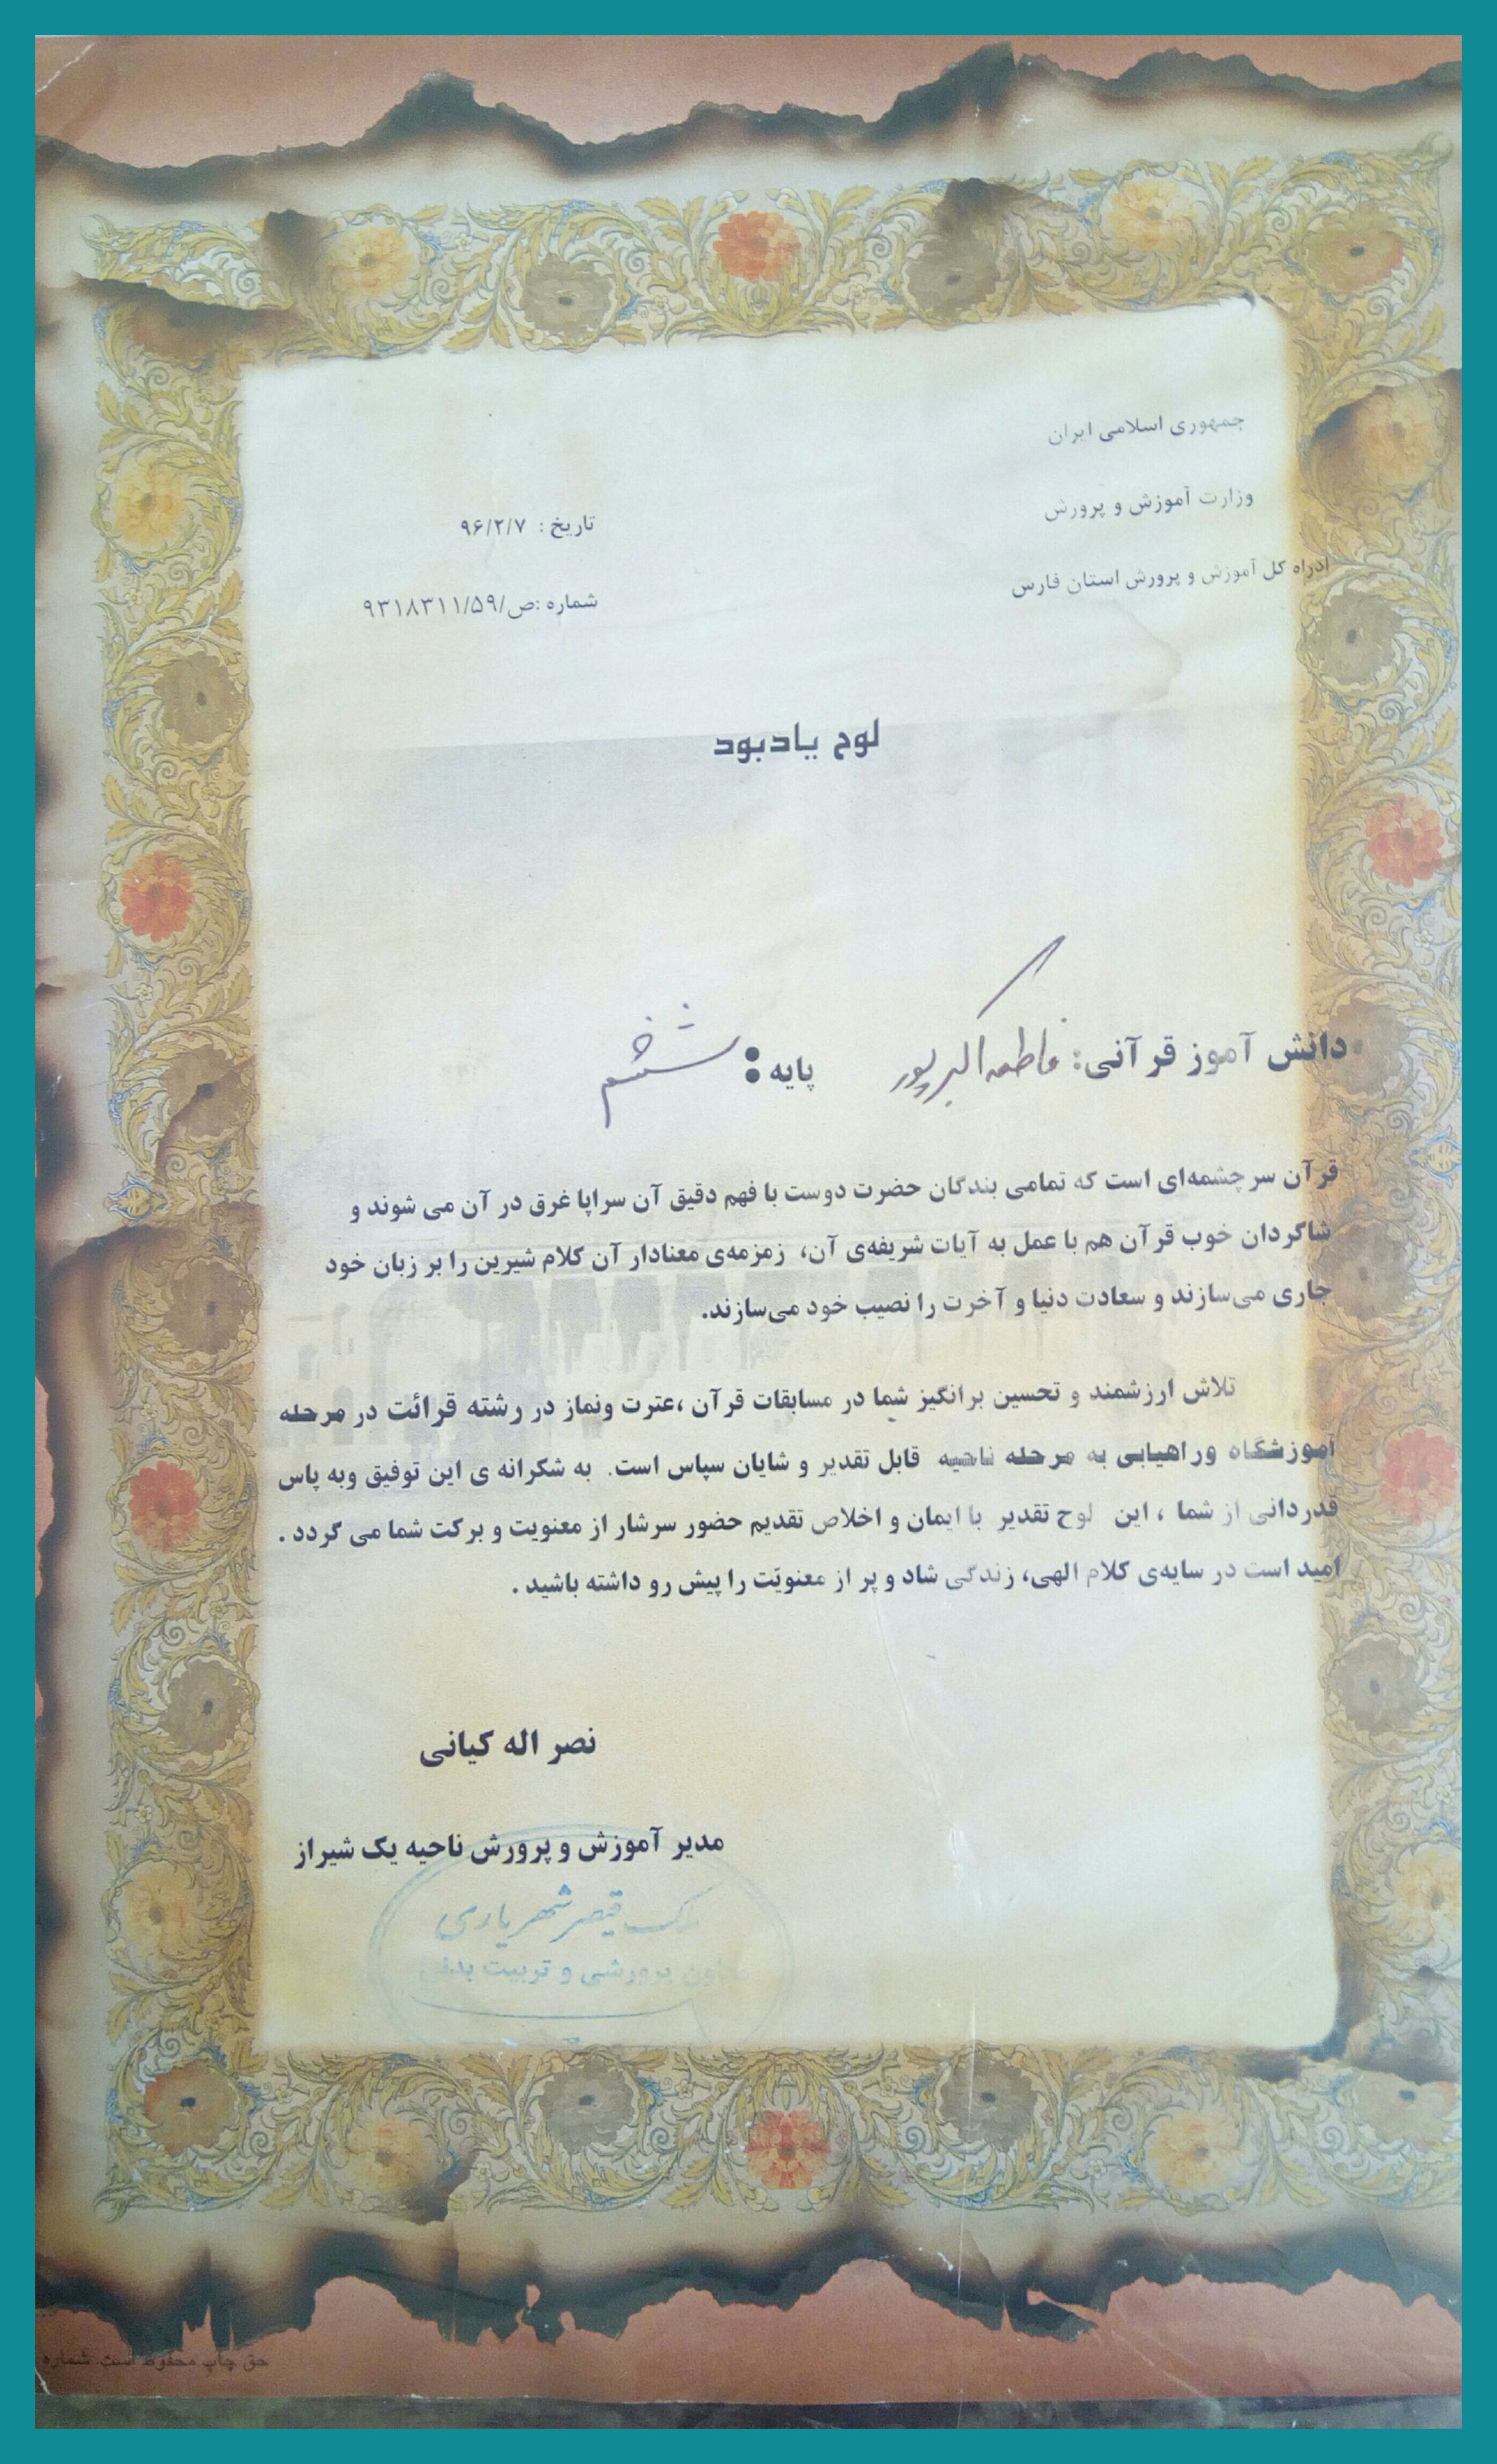 جمهوری اسلامی ایران
وزارت آموزش و پرورش
ادراه کل آموزش و پرورش استان فارس
تاریخ : ۹۶/۲/۷
شماره :ص/۹۳۱۸۳۱۱/۵۹
لوح یادبود
دانش آموز قرآنی: فاطمه اکبرپور پایه: ششم
قرآن سرچشمه‌ای است که تمامی بندگان حضرت دوست با فهم دقیق آن سراپا غرق در آن می شوند و
شاگردان خوب قرآن هم با عمل به آیات شریفه‌ی آن، زمزمه‌ی معنادار آن کلام شیرین را بر زبان خود
جاری می‌سازند و سعادت دنیا و آخرت را نصیب خود می‌سازند.
تلاش ارزشمند و تحسین برانگیز شما در مسابقات قرآن ،عترت ونماز در رشته قرائت در مرحله
آموزشگاه وراهیابی به مرحله ناحیه قابل تقدیر و شایان سپاس است. به شکرانه ی این توفیق وبه پاس
قدردانی از شما ، این لوح تقدیر با ایمان و اخلاص تقدیم حضور سرشار از معنویت و برکت شما می گردد .
امید است در سایه‌ی کلام الهی، زندگی شاد و پر از معنویّت را پیش رو داشته باشید .
نصر اله کیانی
مدیر آموزش و پرورش ناحیه یک شیراز
ملک قیصر شهریاری
معاون پرورشی و تربیت بدنی
حق چاپ محفوظ است. شماره